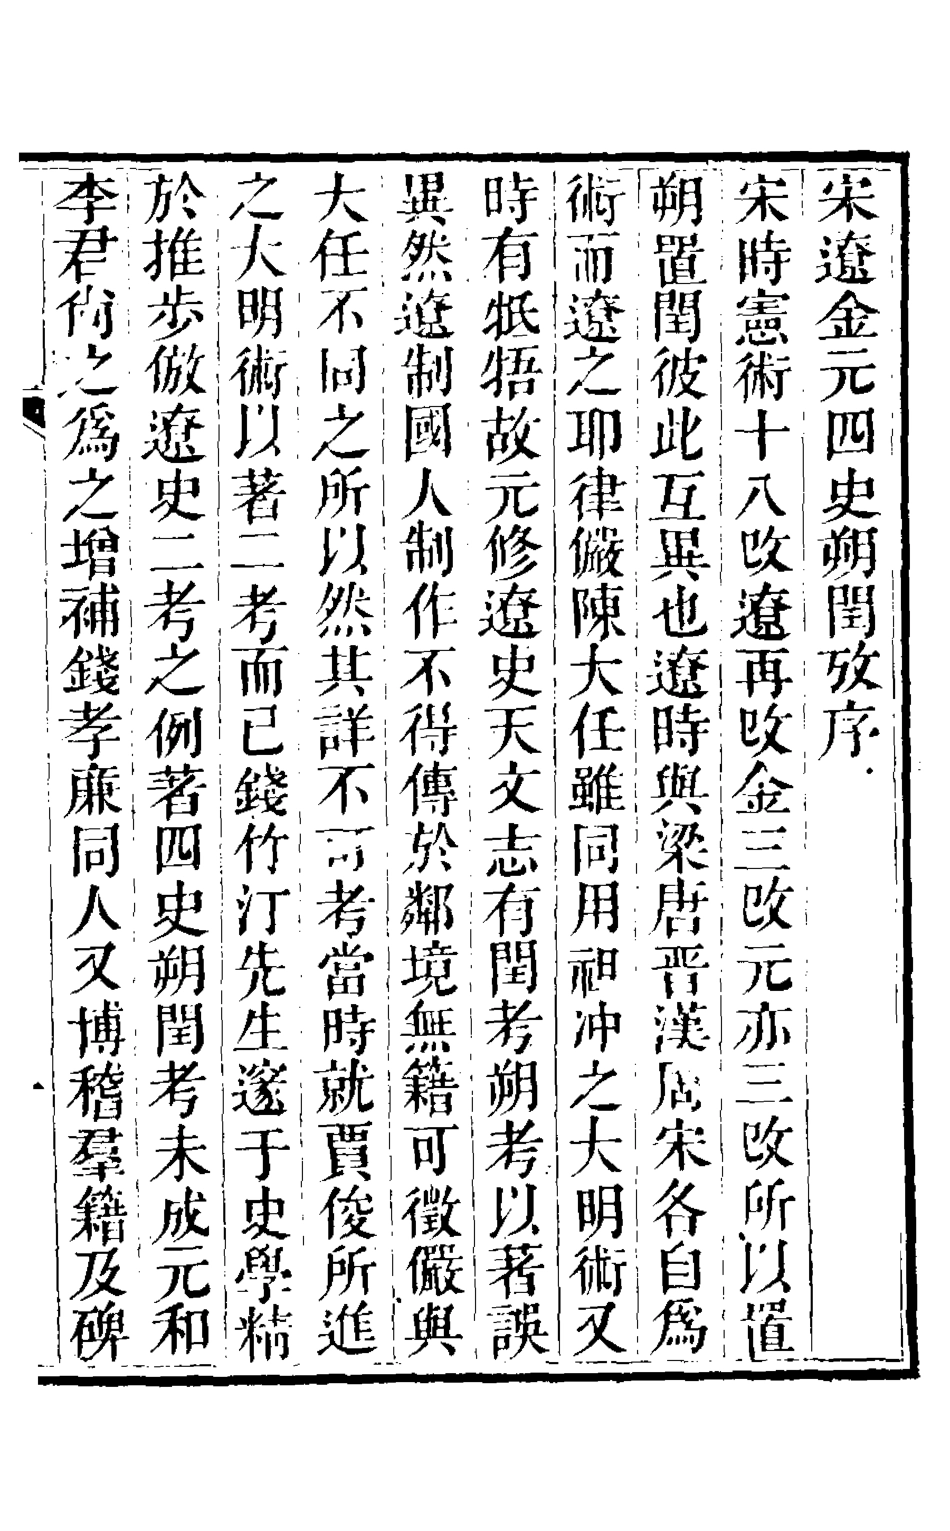 宋遼金元四史朔閏攷序
宋時憲術十八改遼再改金三改元亦三改所以置
朔置閏彼此互異也遼時與梁唐晉漢周宋各自爲
術而遼之耶律儼陳大任雖同用祖冲之大明術又
時有牴牾故元修遼史天文志有閏考朔考以著誤
異然遼制國人制作不得傳於鄰境無籍可徵儼與
大任不同之所以然其詳不可考當時就賈俊所進
之大明術以著二考而已錢竹汀先生邃于史學精
於推步倣遼史二考之例著四史朔閏考未成元和
李君尙之爲之增補錢孝廉同人又博稽羣籍及碑